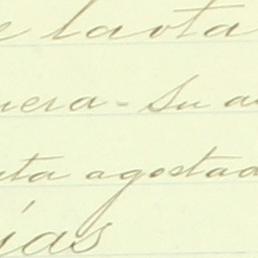 e la ota
nera - Su a
ta agostad
ias